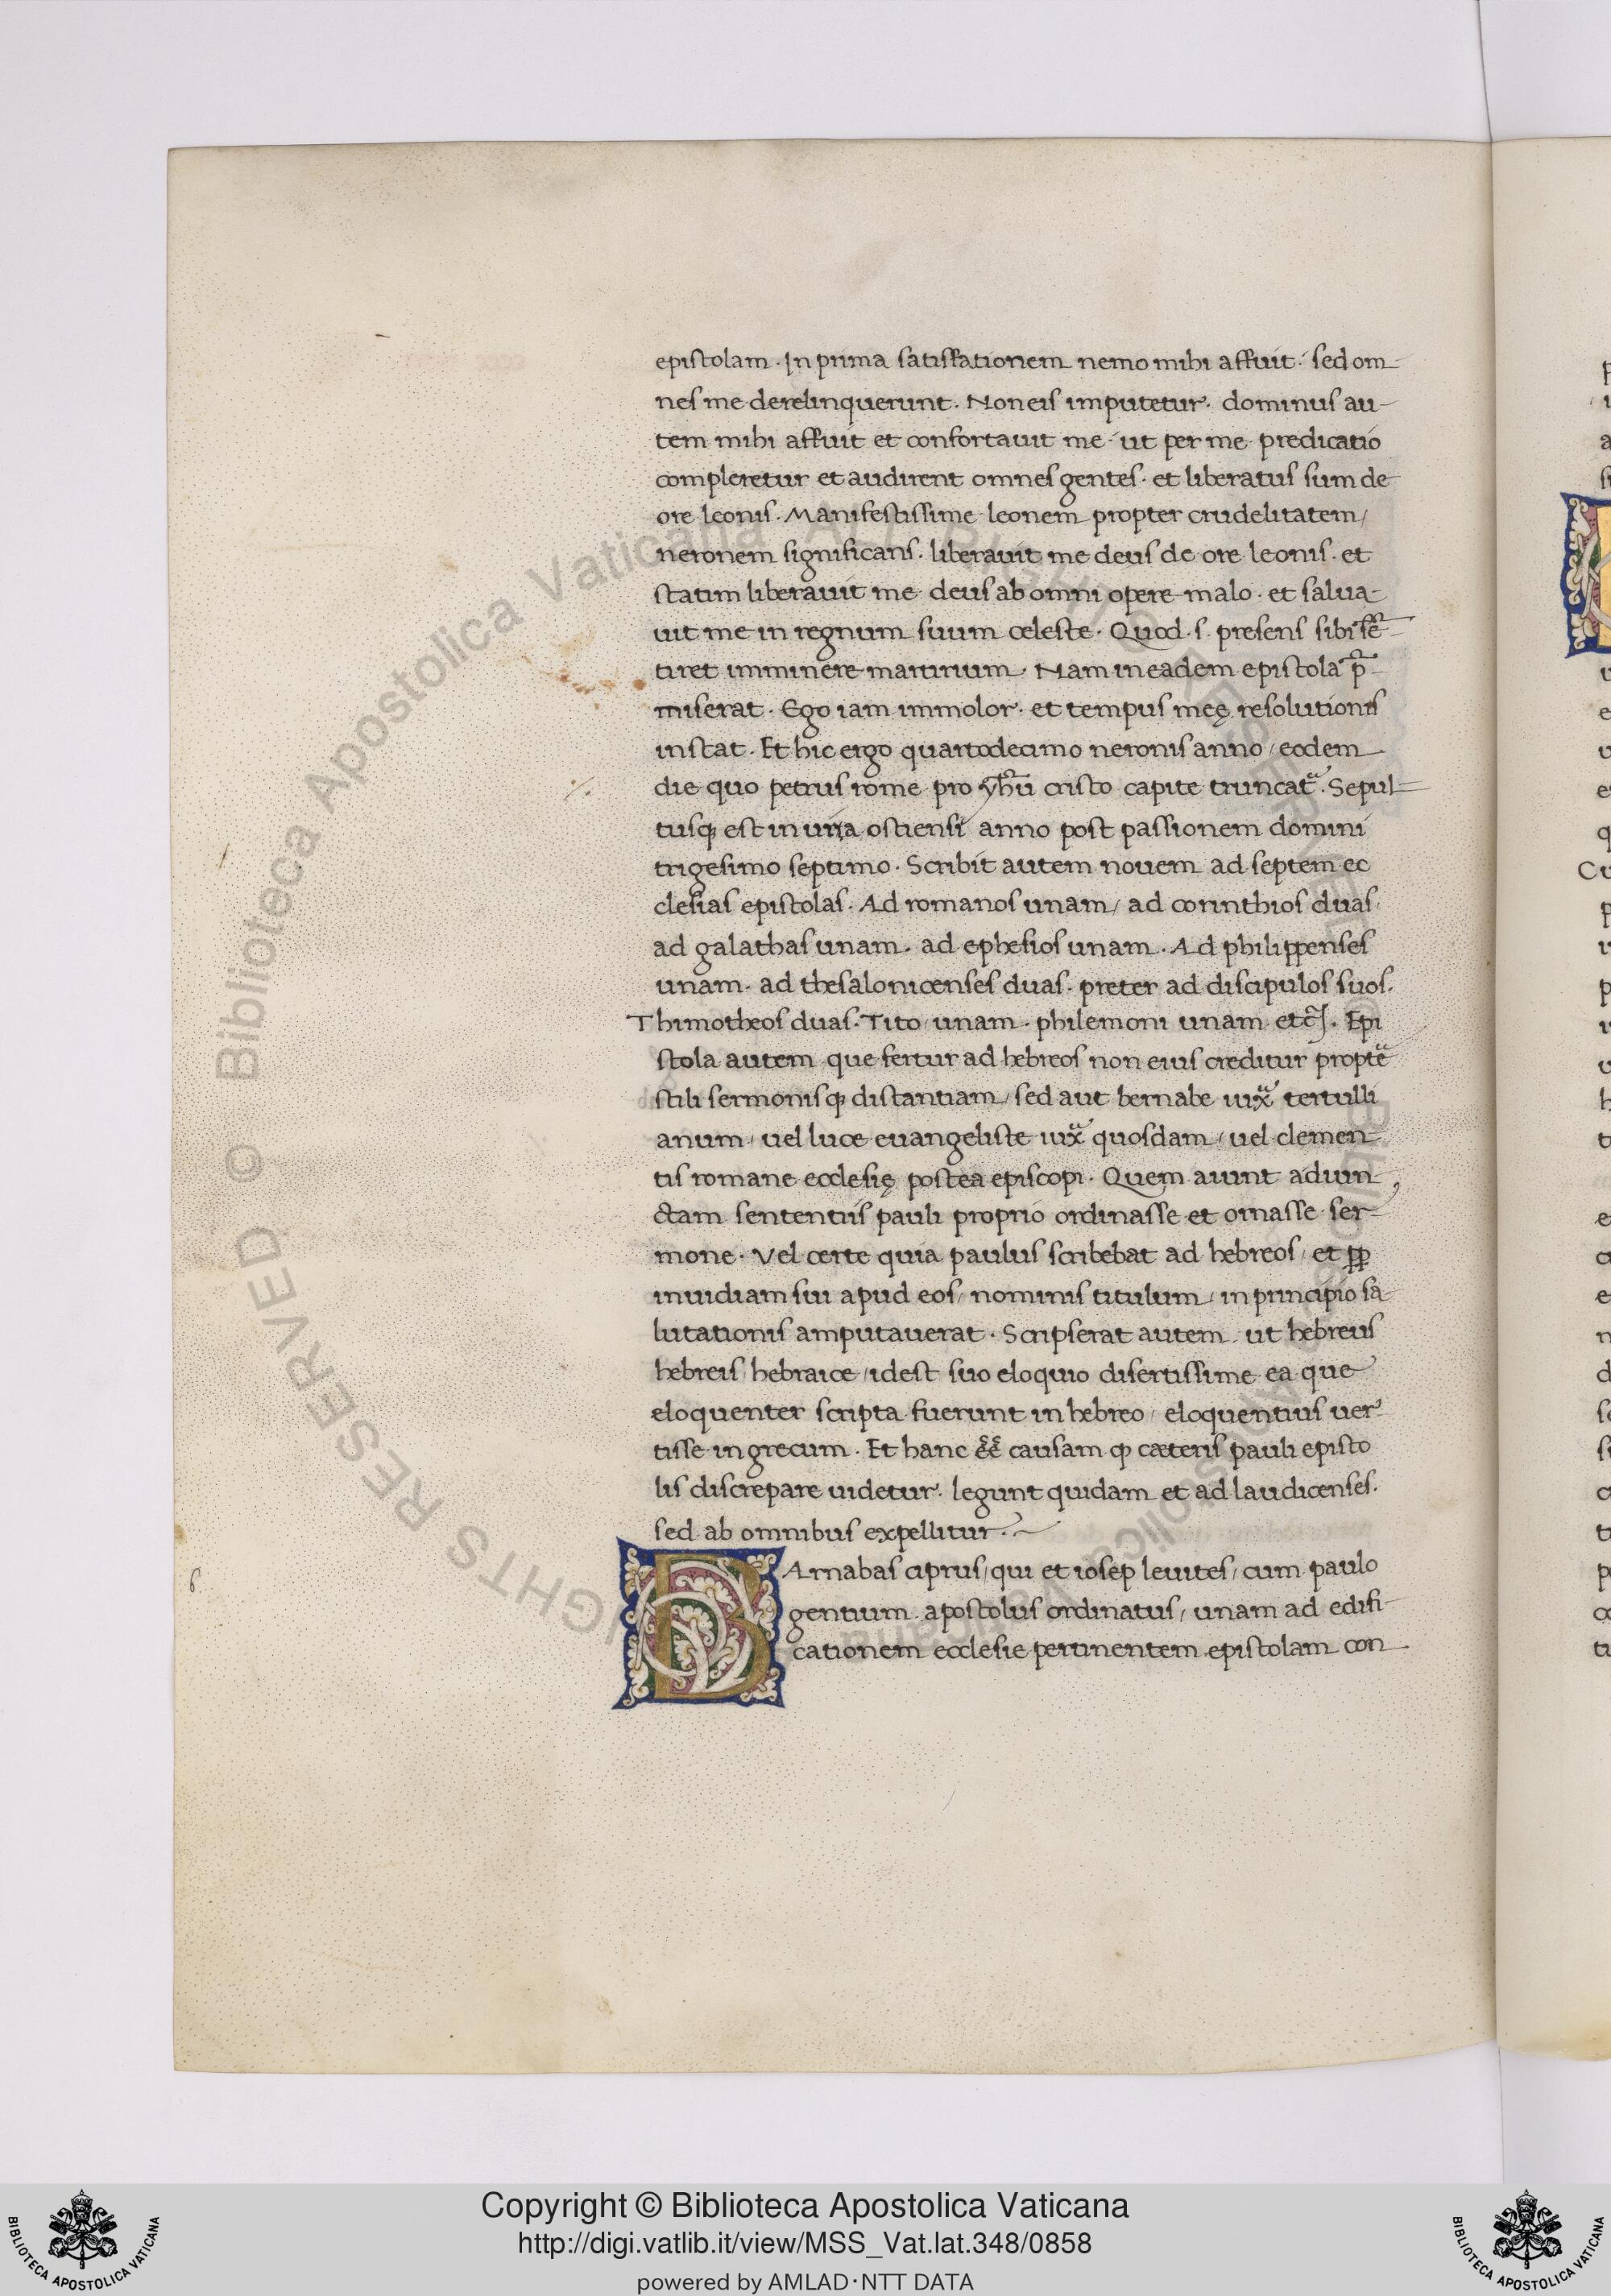 epistolam. In prima satisfationem nemo mihi affuit. sed om-
nes me derelinquerunt. Non eis imputetur. dominus au-
tem mihi affuit et confortauit me. ut per me predicatio
compleretur et audirent omnes gentes. et liberatus sum de
ore leonis. Manifestissime leonem propter crudelitatem/
neronem significans. liberauit me deus de ore leonis. et
statim liberauit me deus ab omni opere malo. et salua-
uit me in regnum suum celeste. Quod .s. presens sibi sē-
tiret imminere martirium. Nam in eadem epistola p̄-
miserat. Ego iam immolor. et tempus meę resolutionis
instat. Et hic ergo quartodecimo neronis anno / eodem
die quo petrus rome pro yhū cristo capite truncat᷑. Sepul-
tusq; est in uia ostiensi anno post passionem domini
trigesimo septimo. Scribit autem nouem ad septem ec
clesias epistolas. Ad romanos unam / ad corinthios duas.
ad galathas unam. ad ephesios unam. Ad philippenses
unam. ad thesalonicenses duas. preter ad discipulos suos.
Thimotheos duas. Tito unam. philemoni unam etc̄. Epi
stola autem que fertur ad hebreos non eius creditur propt᷑
stili sermonisq; distantiam / sed aut bernabe iux᷑ tertulli
anum / uel luce euangeliste iux᷑ quosdam / uel clemen-
tis romane ecclesię postea episcopi. Quem aiunt adiun
ctam sententiis pauli proprio ordinasse et ornasse ser-
mone. Vel certe quia paulus scribebat ad hebreos / et pp̄
inuidiam sui apud eos / nominis titulum / in principio sa-
lutationis amputauerat. Scripserat autem ut hebreus
hebreis hebraice / idest suo eloquio disertissime ea que
eloquenter scripta fuerunt in hebreo / eloquentius uer-
tisse in grecum. Et hanc ēē causam q; cæteris pauli episto
lis discrepare uidetur. legunt quidam et ad laudicenses.
sed ab omnibus expellitur.
6.
BArnabas ciprus / qui et iosep leuites / cum paulo
gentium apostolus ordinatus / unam ad edifi-
cationem ecclesie pertinentem epistolam con-
Cu
© Biblioteca Apostolica Vaticana ALL RIGHTS RESERVED
Copyright © Biblioteca Apostolica Vaticana
http://digi.vatlib.it/view/MSS_Vat.lat.348/0858
powered by AMLAD·NTT DATA
BIBLIOTECA APOSTOLICA VATICANA
BIBLIOTECA APOSTOLICA VATICANA